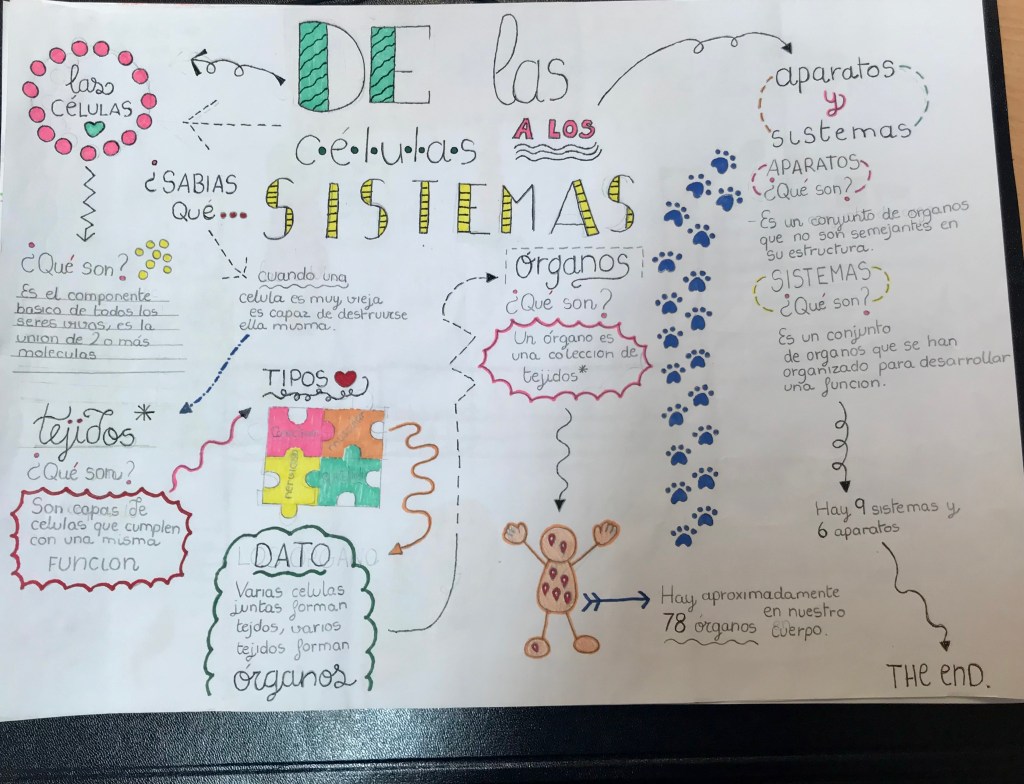 DE las
células A LOS
SISTEMAS
las
CÉLULAS
¿Qué son?
Es el componente
basico de todos los
seres vivos, es la
union de 2 o más
moleculas
¿SABIAS
Qué...
cuando una
celula es muy vieja
es capaz de destruirse
ella misma.
tejidos*
¿Qué son?
Son capas de
celulas que cumplen
con una misma
FUNCION
TIPOS
nervioso
DATO
Varias celulas
juntas forman
tejdos, varios
tejidos forman
órganos
órganos
¿Qué son?
Un órgano es
una colección de
tejidos*
Hay aproximadamente
78 órganos en nuestro
cuerpo.
aparatos
y
sistemas
APARATOS
¿Qué son?
- Es un conjunto de organos
que no son semejantes en
su estructura.
SISTEMAS
¿Qué son?
Es un conjunto
de organos que se han
organizado para desarrollar
una funcion.
Hay 9 sistemas y
6 aparatos
THE END.